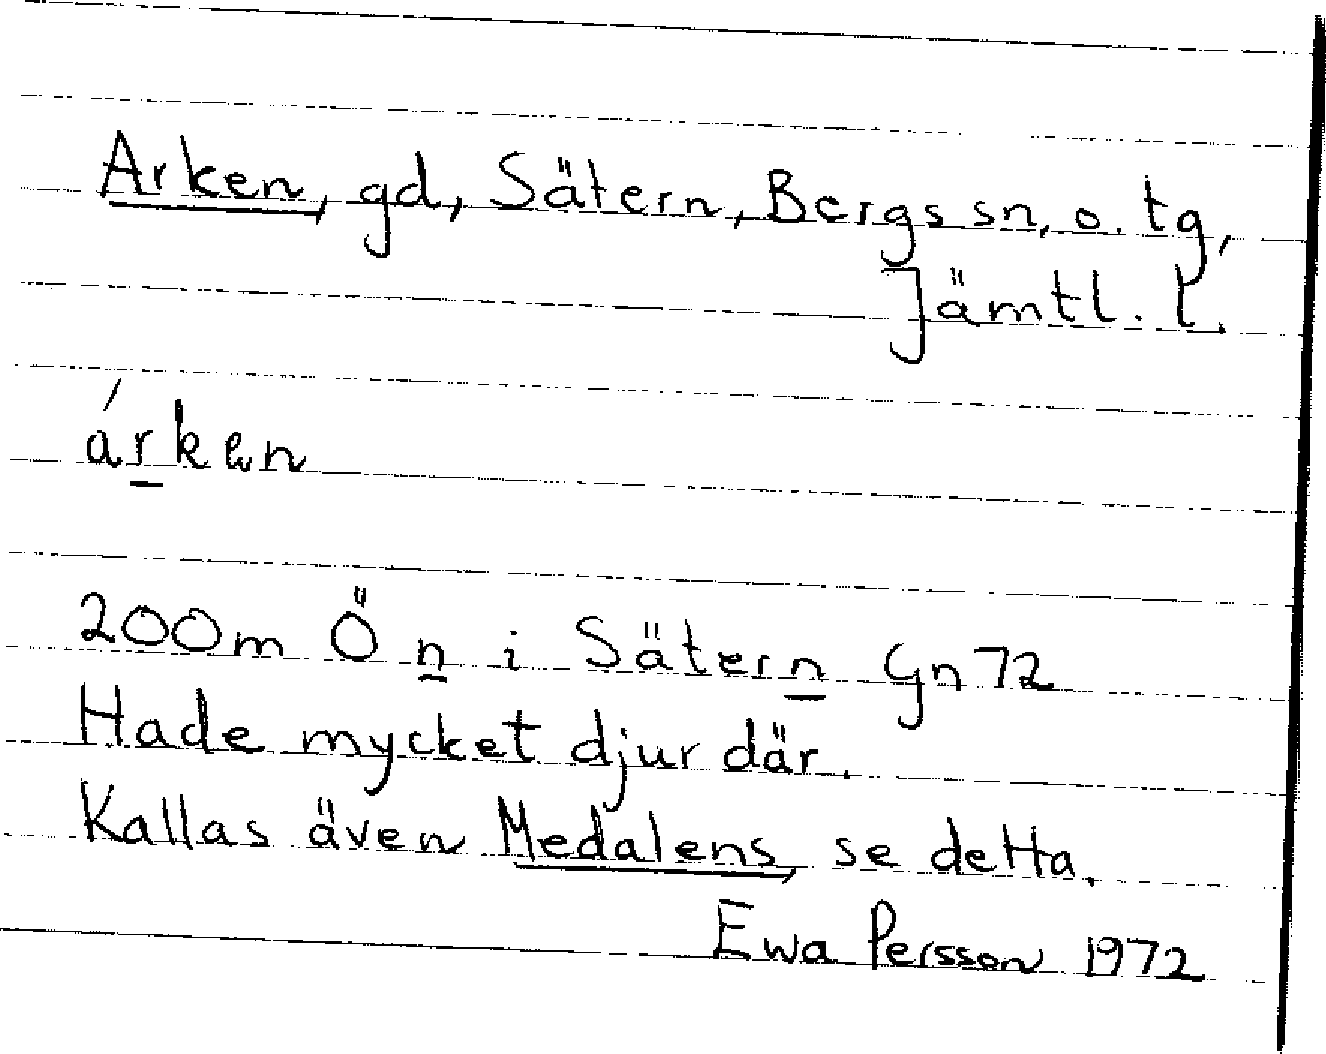 Arken, gd, Sätern, Bergs sn, o. tg,
Jämtl. l.
árken
200m Ö n i Sätern Gn 72
Hade mycket djur där.
Kallas även Medalens, se detta.
Ewa Persson 1972